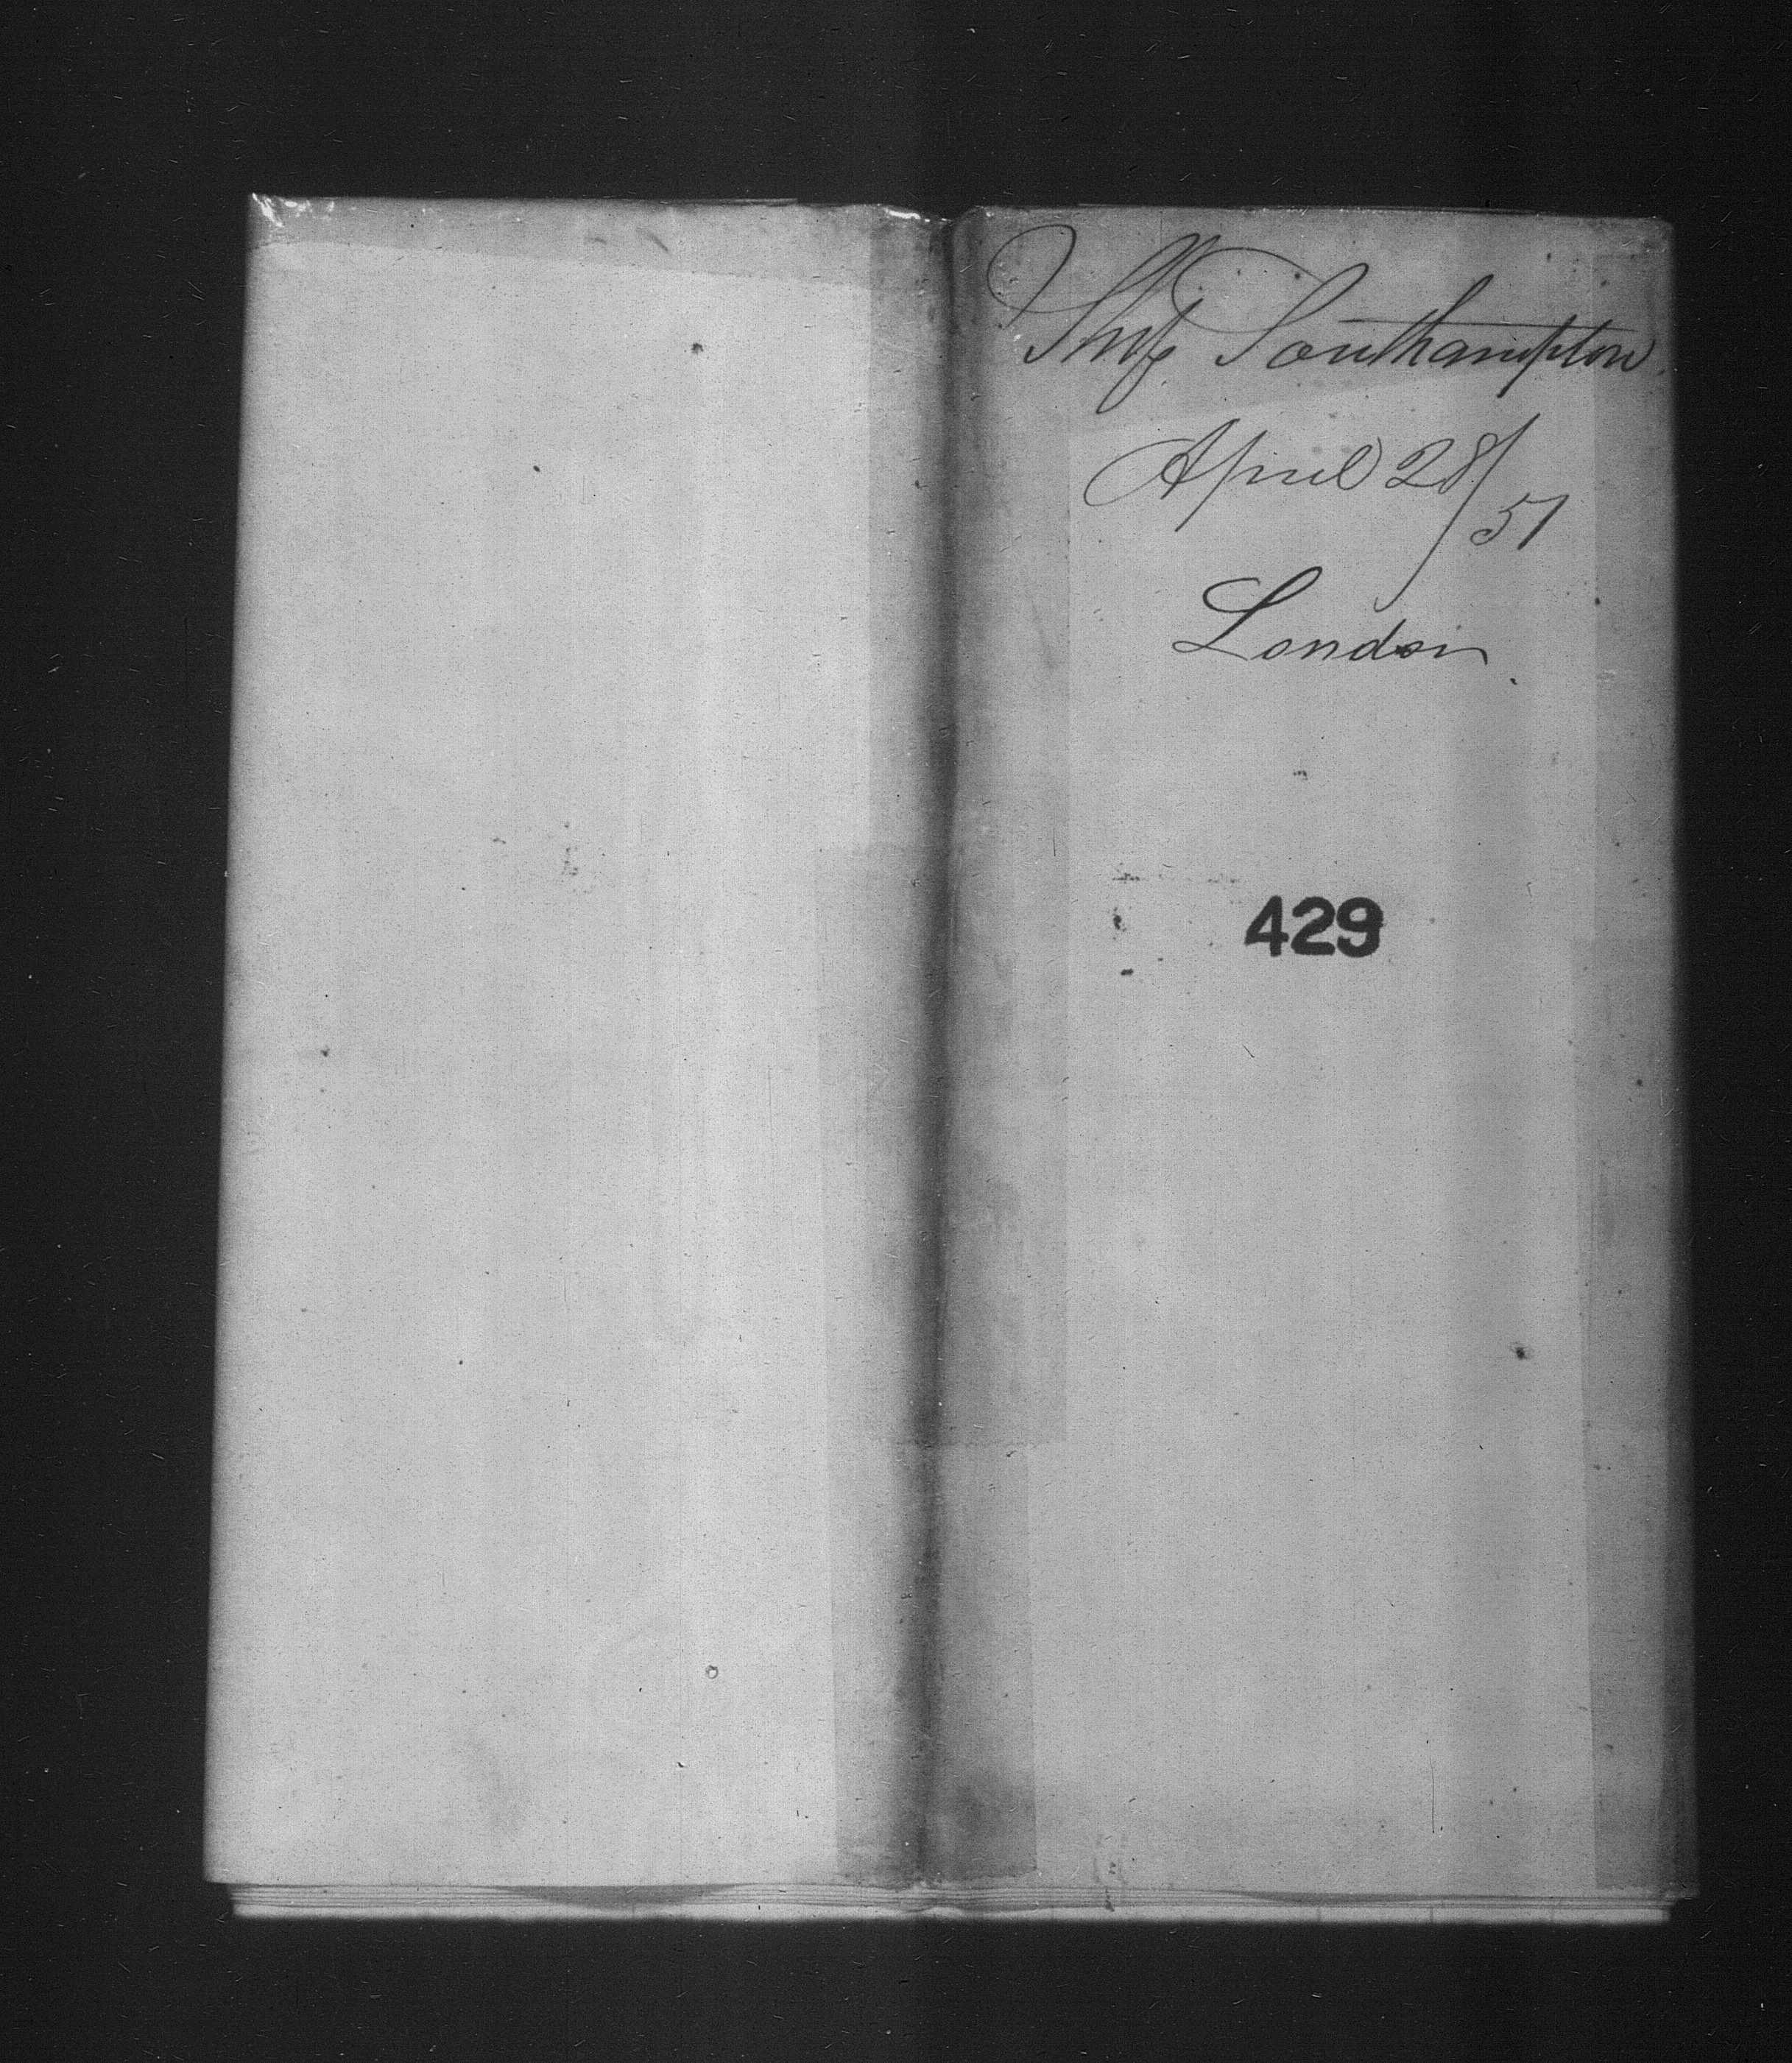 Ship Southampton
April 28/51
London
429